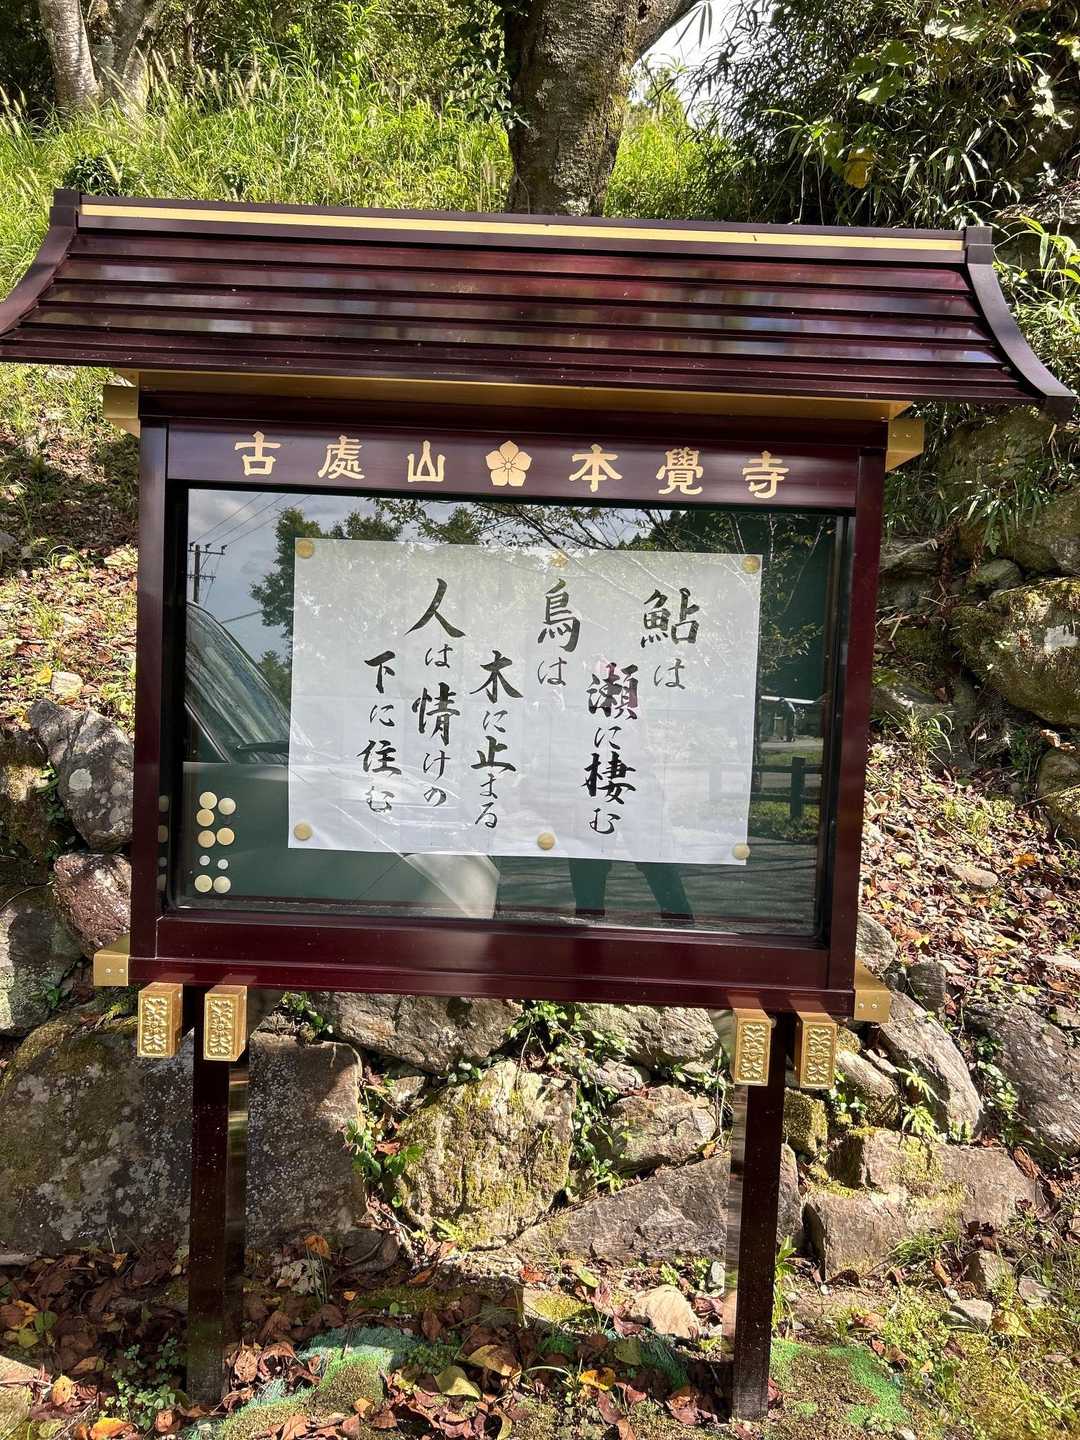 古處山本覺寺
鮎は
瀬に棲む
鳥は
木に止まる
人は情けの
下に住む